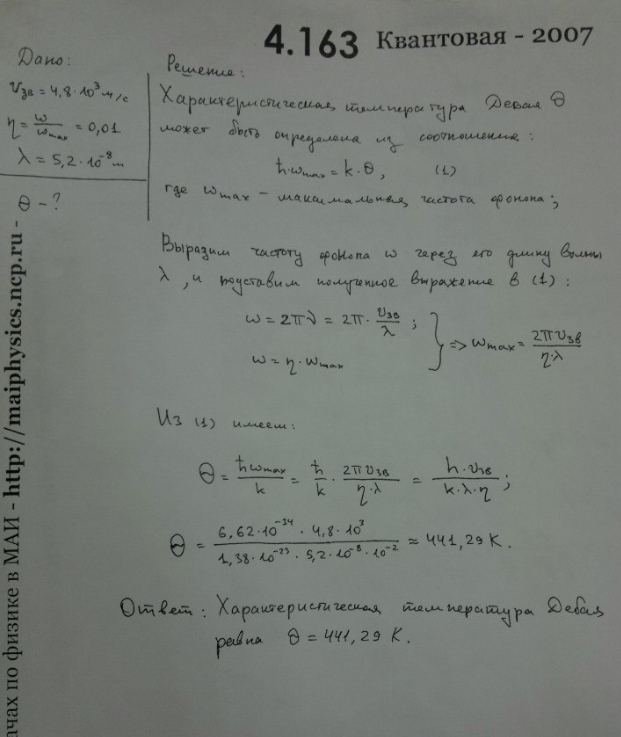 4.163 Квантовая - 2007
Дано:
υзв = 4,8·10³ м/с
η = ω/ωmax = 0,01
λ = 5,2·10⁻⁸ м
θ - ?
Решение:
Характеристическая температура Дебая θ
может быть определена из соотношения:
ħωmax = k·θ, (1)
где ωmax – максимальная частота фонона;
Выразим частоту фонона ω через его длину волны
λ, и подставим полученное выражение в (1):
ω = 2πν = 2π·υзв/λ ;
ω = η·ωmax
} => ωmax = 2πυзв/(η·λ)
Из (1) имеем:
θ = ħωmax/k = ħ/k · 2πυзв/(η·λ) = h·υзв/(k·λ·η) ;
θ = 6,62·10⁻³⁴ · 4,8·10³/(1,38·10⁻²³ · 5,2·10⁻⁸ · 10⁻²) ≈ 441,29 К.
Ответ: Характеристическая температура Дебая
равна θ = 441,29 К.
ачах по физике в МАИ - http://maiphysics.ncp.ru -